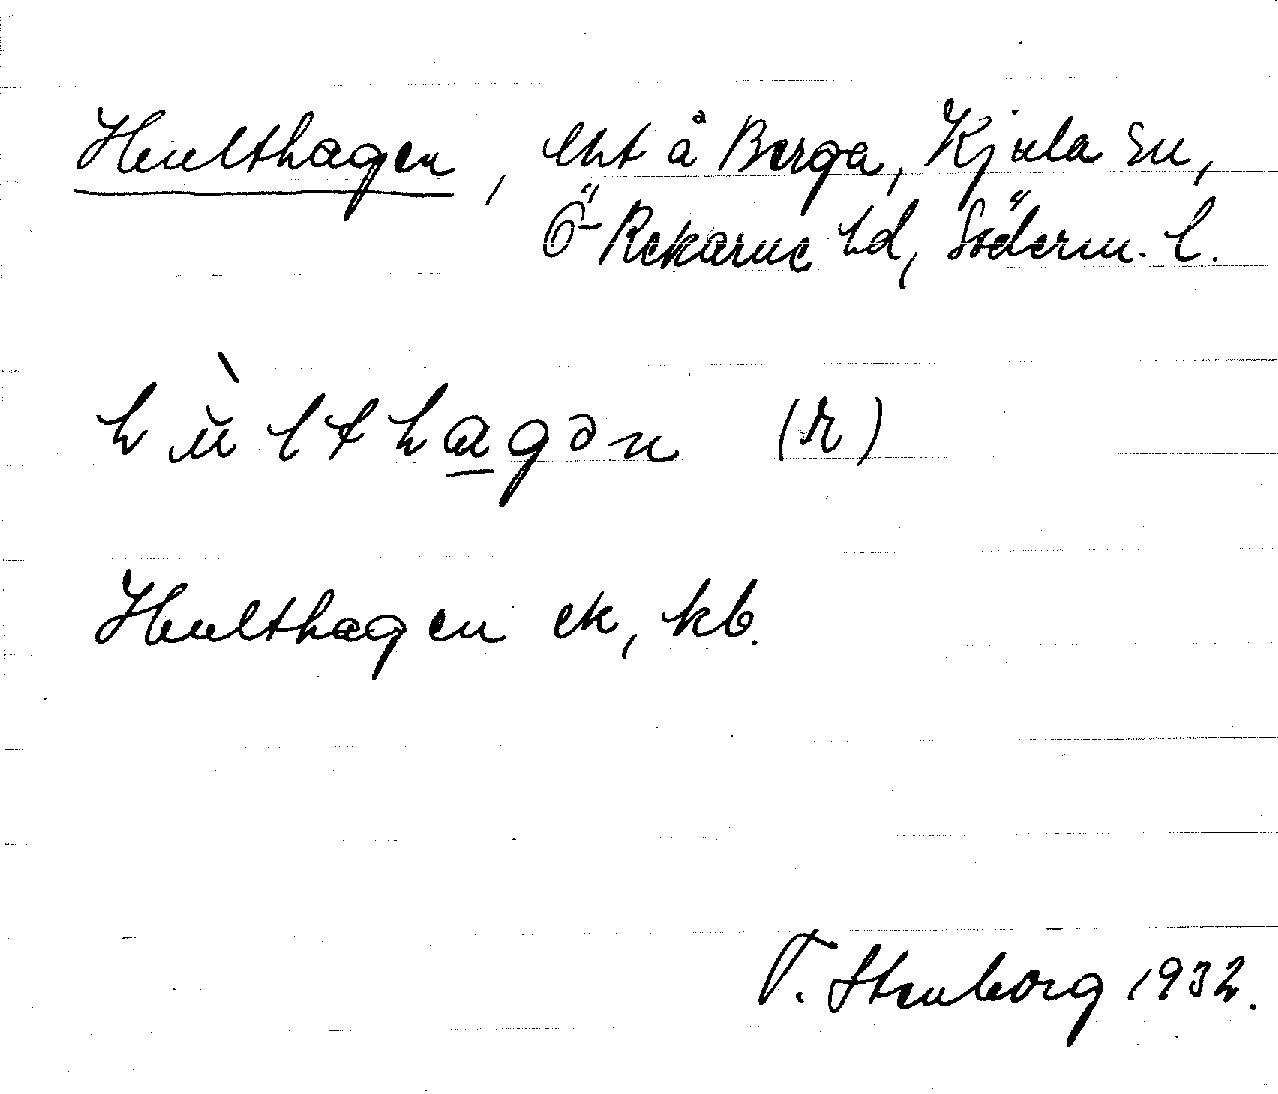 Hulthagen, lht å Berga, Kjula sn,
Ö-Rekarne hd, Söderm. l.
hùlthagən (r)
Hulthagen ek, kb.
T. Stenborg 1932.